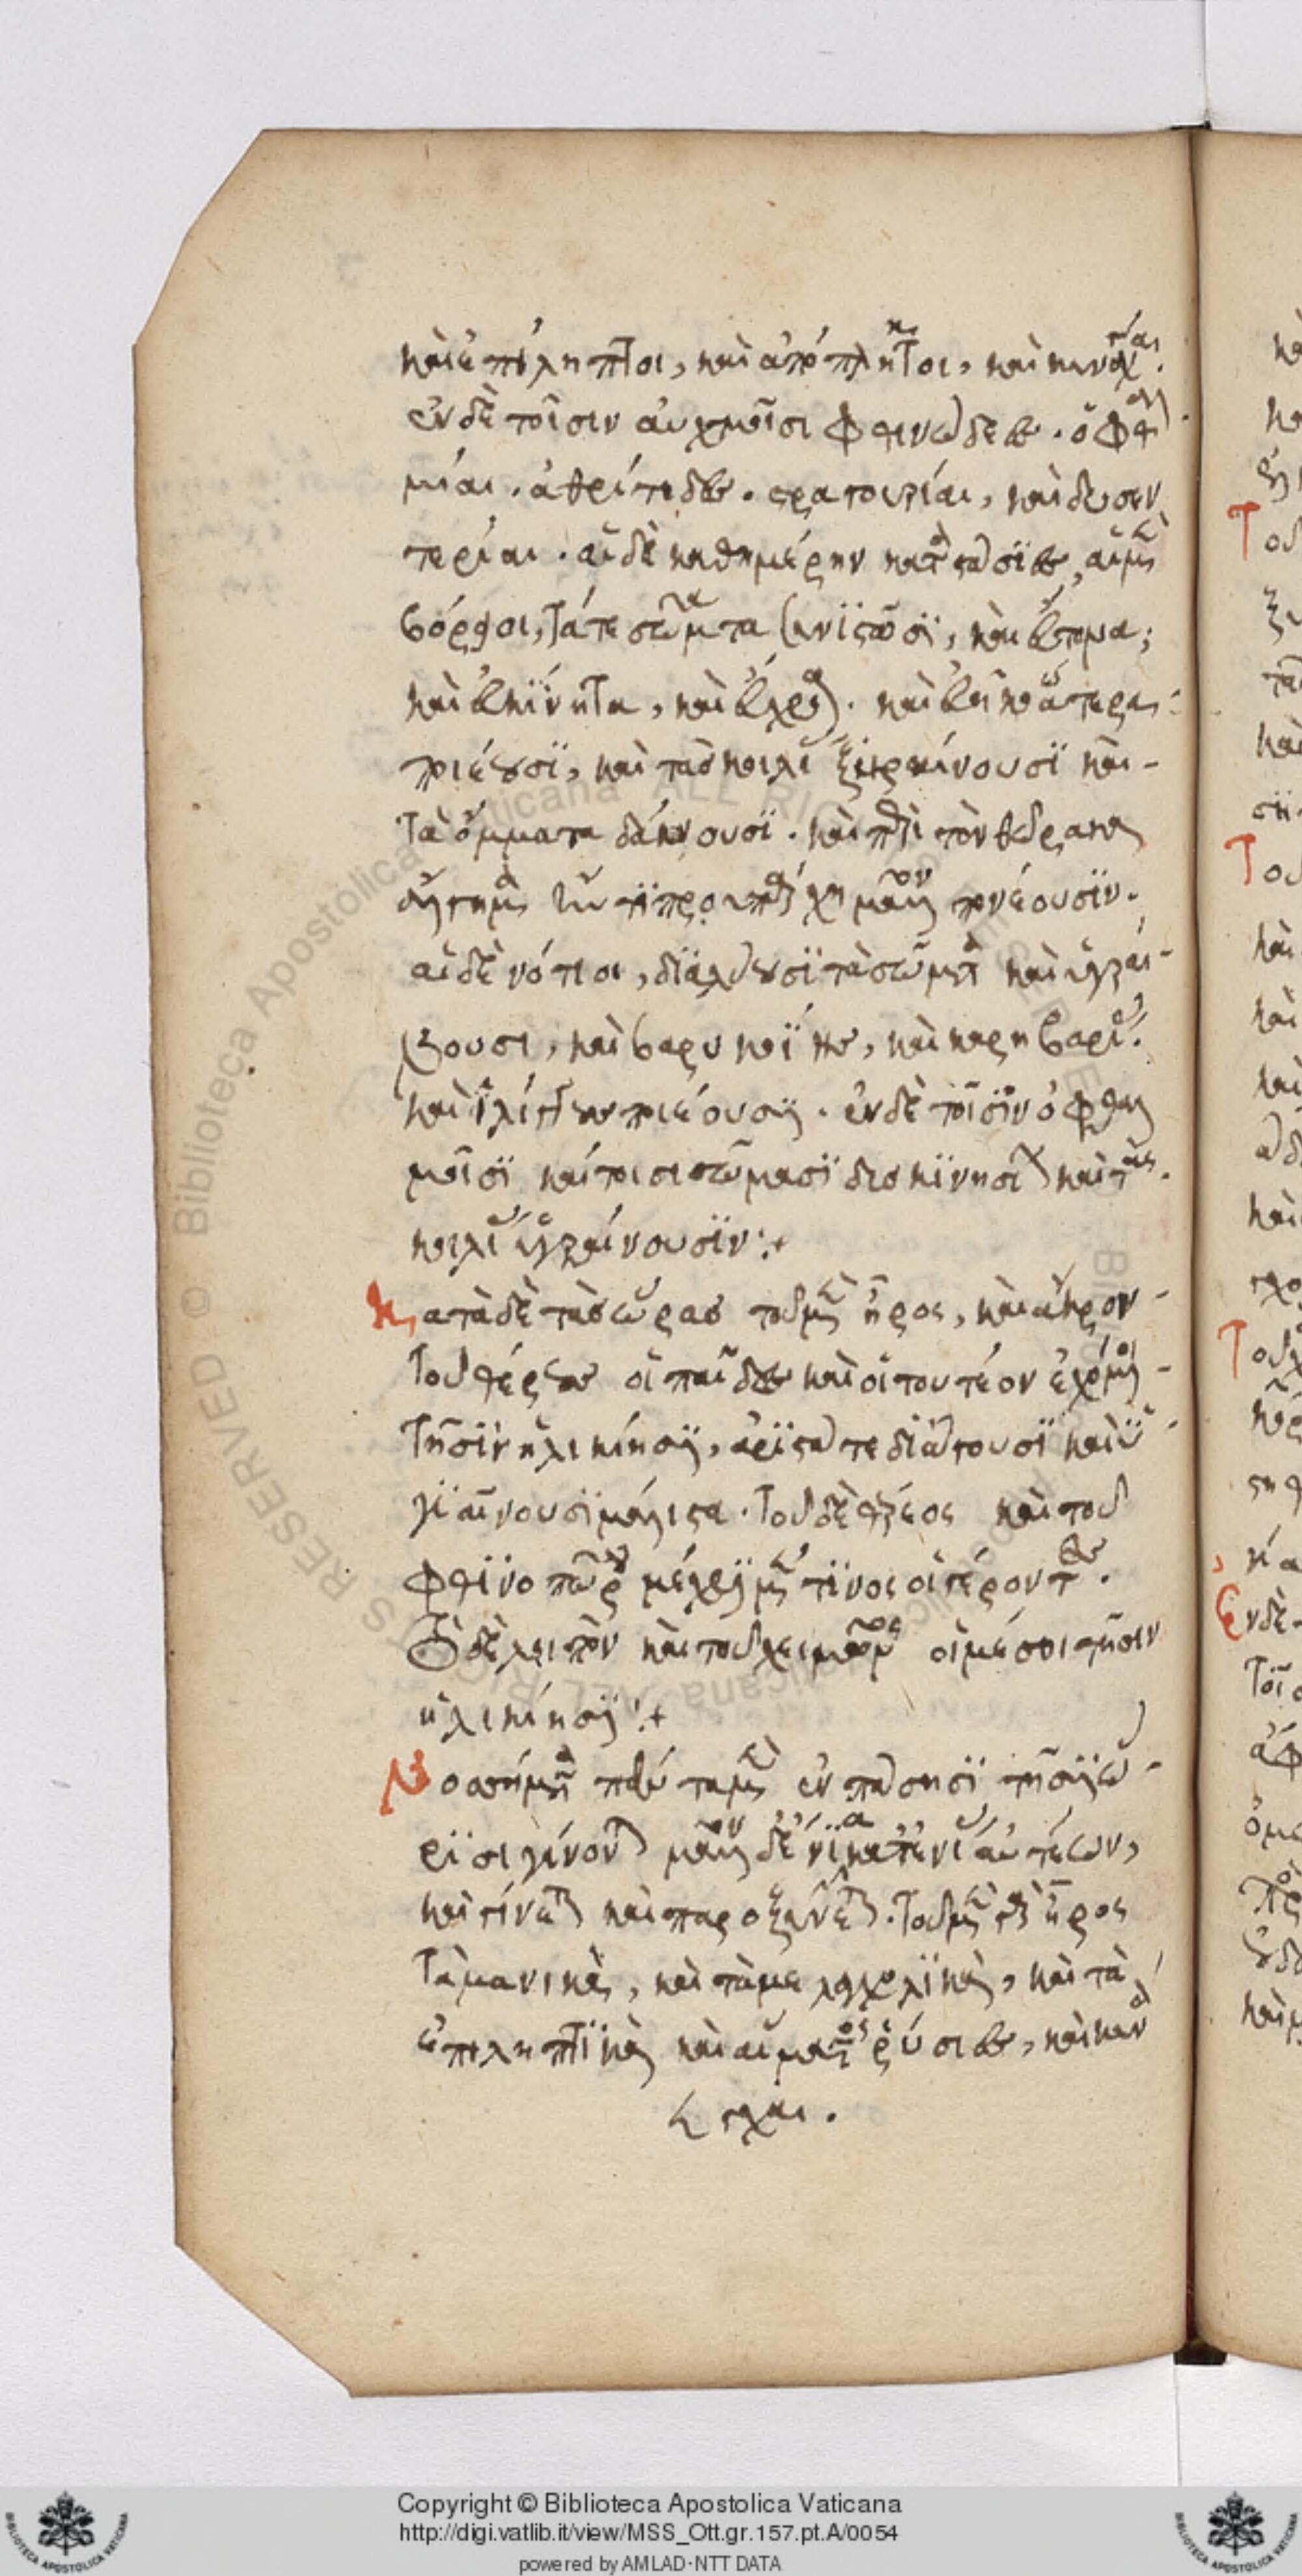 καὶ ἐπίληπτοι, καὶ ἀπόπληκτοι, καὶ κυνάγχαι.
ἐν δὲ τοῖσιν αὐχμοῖσι φθινώδεες. ὀφθαλ
μίαι. ἀρθρίτιδες. στραγγουρίαι, καὶ δυσεν
τερίαι. αἱ δὲ καθημέρην καταστάσιες, αἱ μὲν
βόρειοι, τά τε σώματα συνιστᾶσι, καὶ εὔτονα,
καὶ εὐκίνητα, καὶ εὔχροα. καὶ εὐηκοώτερα
ποιέουσι, καὶ τὰς κοιλίας ξηραίνουσι καὶ
τὰ ὄμματα δάκνουσι. καὶ περὶ τὸν θώρακα
ἄλγημα ἤν τι προϋπάρχῃ μᾶλλον πονέουσιν.
αἱ δὲ νότιοι, διαλύουσι τὰ σώματα καὶ ὑγραί
νουσι, καὶ βαρυηκοΐας, καὶ καρηβαρίας.
καὶ ἰλίγγους ποιέουσιν. ἐν δὲ τοῖσιν ὀφθαλ
μοῖσι καὶ τοῖσι σώμασι δυσκινησίην καὶ τὰς
κοιλίας ὑγραίνουσιν:+
Κατὰ δὲ τὰς ὥρας τοῦ μὲν ἦρος, καὶ ἄκρου
τοῦ θέρεος οἱ παῖδες καὶ οἱ τουτέων ἐχόμενοι
τῇσιν ἡλικίῃσιν, ἄριστά τε διάγουσι καὶ ὑ
γιαίνουσι μάλιστα. τοῦ δὲ θέρεος καὶ τοῦ
φθινοπώρου μέχρι μέν τινος οἱ γέροντες.
τὸ δὲ λοιπὸν καὶ τοῦ χειμῶνος οἱ μέσοι τῇσιν
ἡλικίῃσιν:+
Νοσήματα πάντα μὲν ἐν πάσῃσι τῇσιν ὥ
ρῃσι γίνονται μᾶλλον δ' ἔνια κατ' ἐνίας αὐτέων,
καὶ γίνεται καὶ παροξύνεται. τοῦ μὲν γὰρ ἦρος
τὰ μανικὰ, καὶ τὰ μελαγχολικὰ, καὶ τὰ
ἐπιληπτικὰ καὶ αἵματος ῥύσιες, καὶ κυνά
γχαι.
Copyright © Biblioteca Apostolica Vaticana
http://digi.vatlib.it/view/MSS_Ott.gr.157.pt.A/0054
powered by AMLAD·NTT DATA